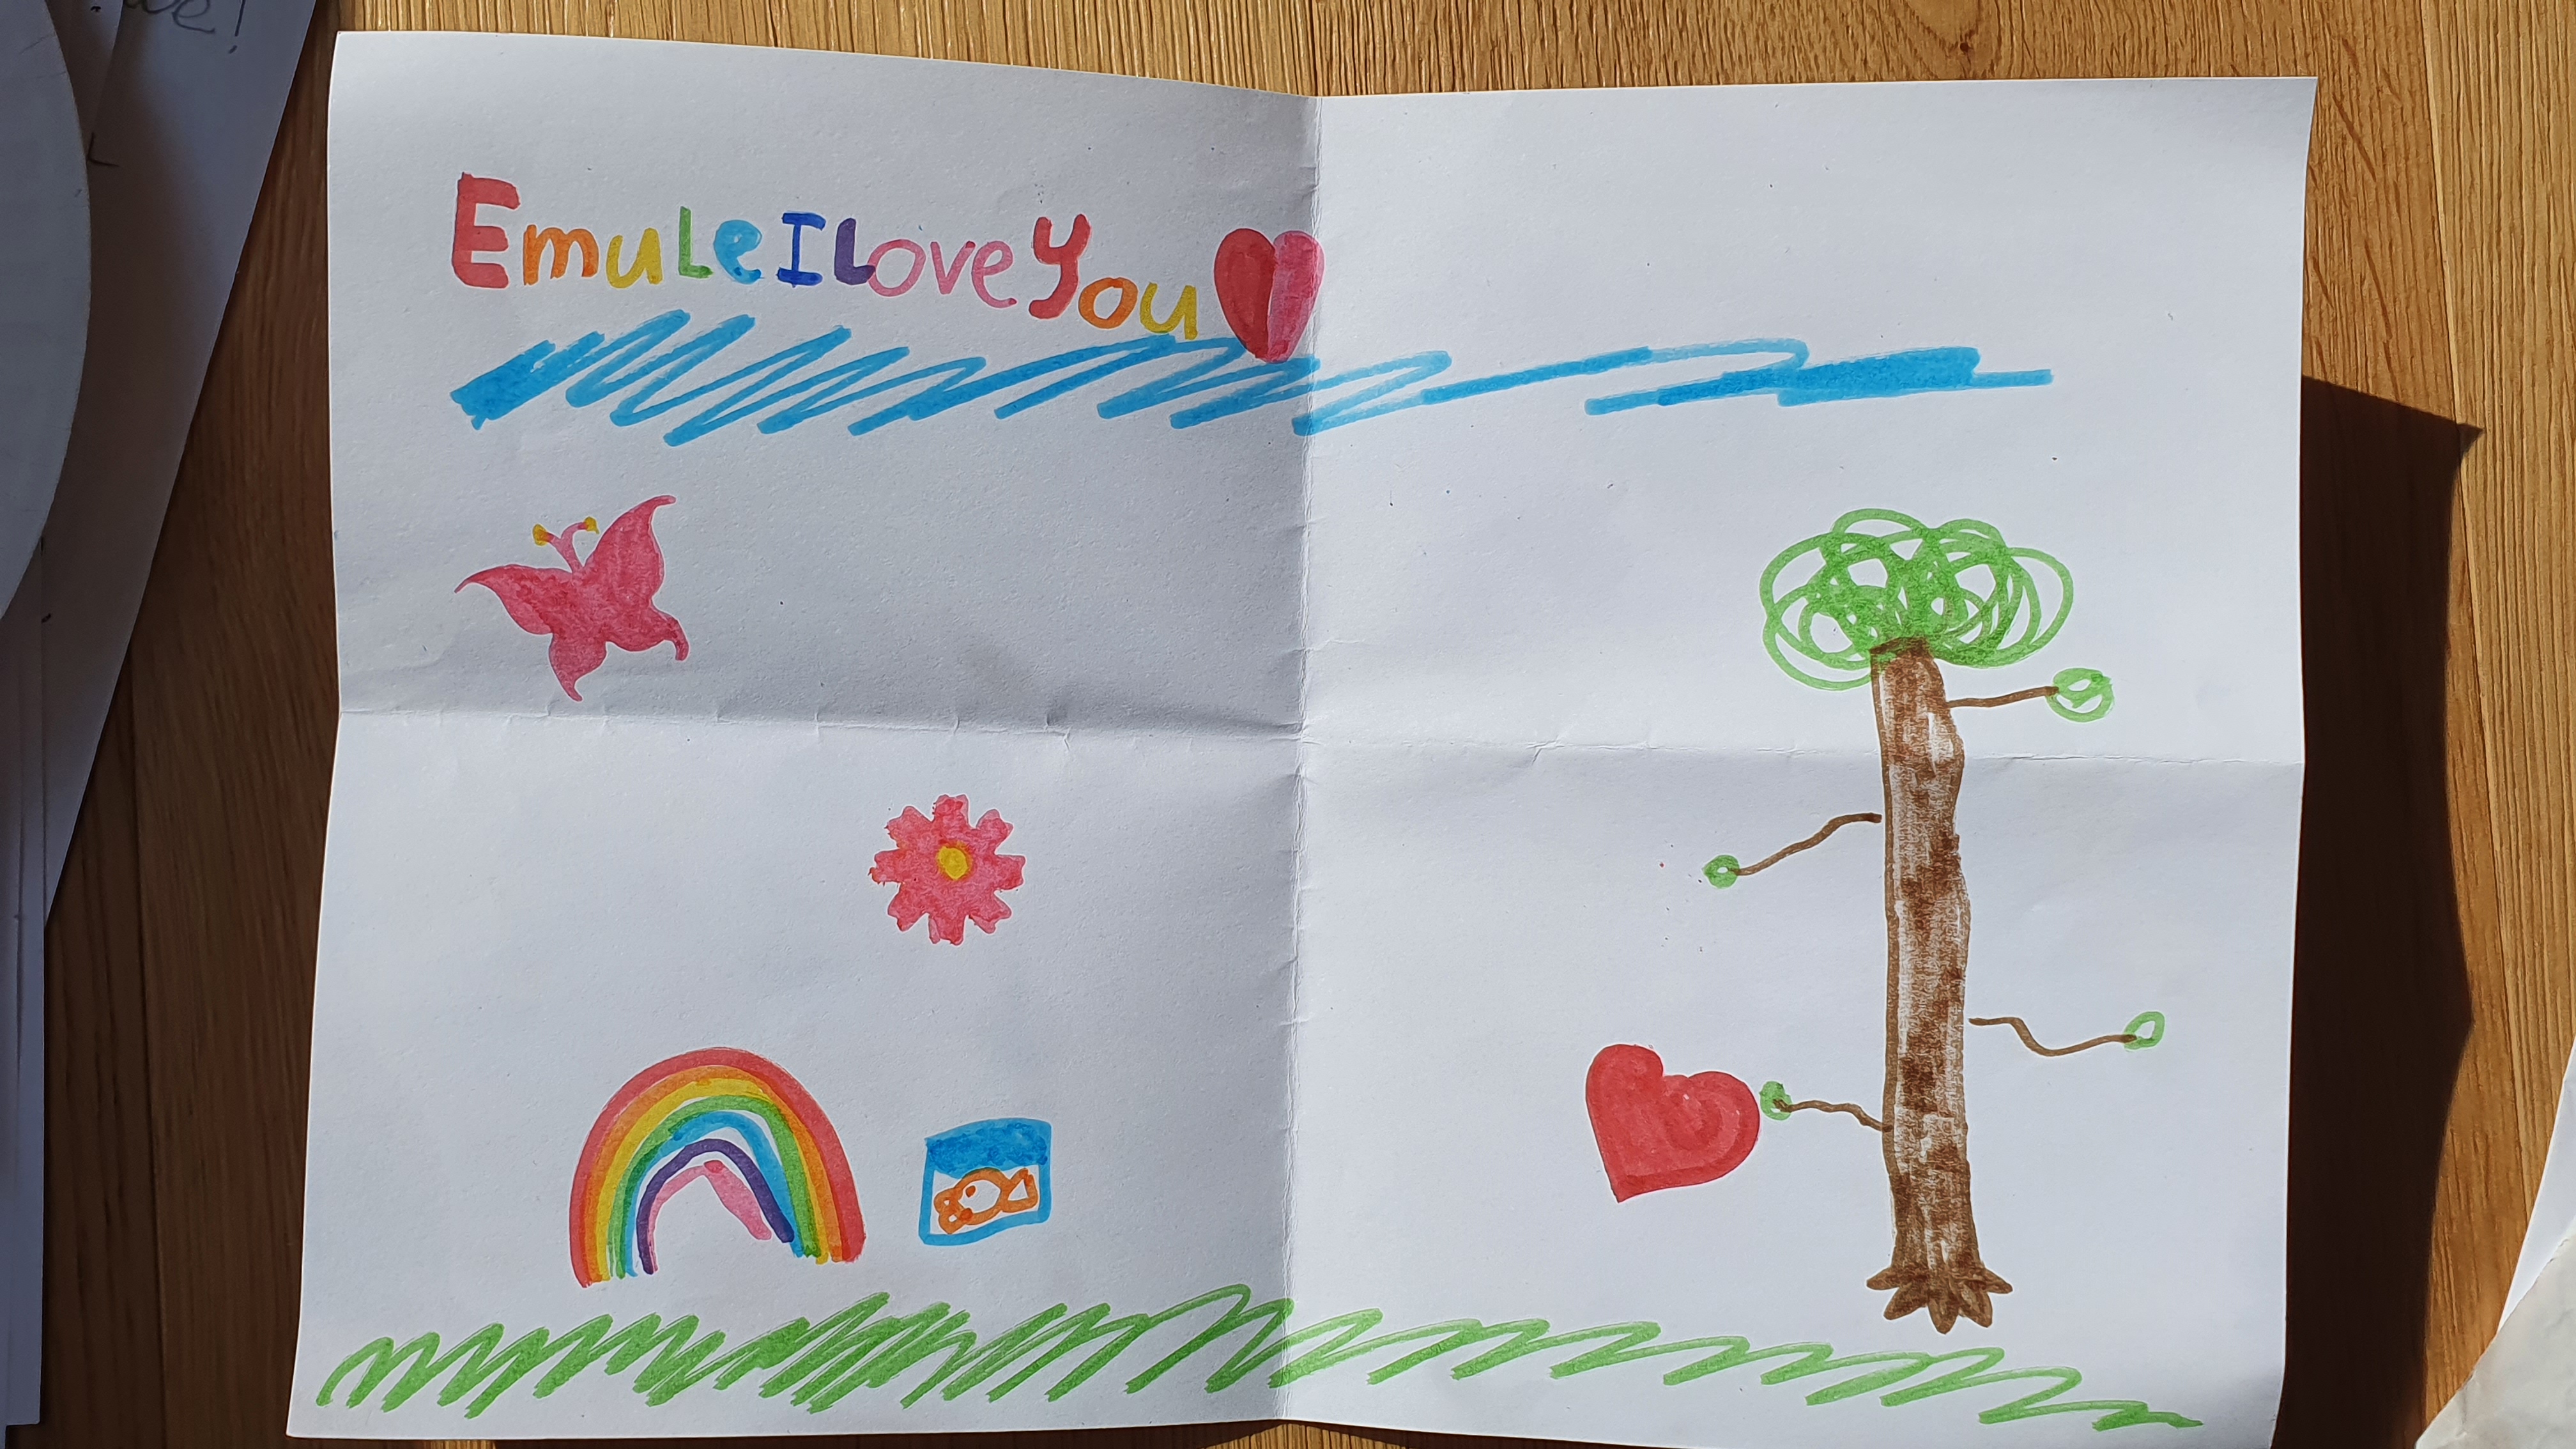 Emule I Love You